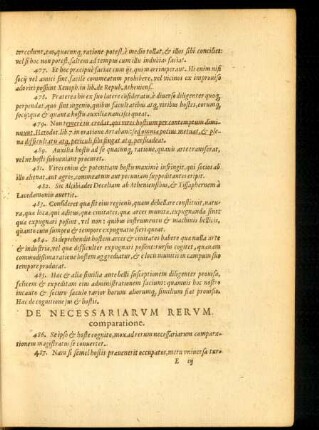 tercessent, eum, quacunq, ratione potest, è medio tollat, & illos sibi conciliet:
vel si hoc non potest, saltem ad tempus cum illis inducias faciat.
477. Et hoc præcipuè faciat cum ijs, qui mari imperant. Hi enim nisi
socij vel amici sint facilè commeatum prohibere, vel vicinos ex improuiso
adoriri possunt Xenoph. in lib. de Repub. Atheniens.
478. Præterea hic excussa latere consideratis, & diuerso diligenter quoq,
perpendat, qui sint ingenio, quibus facultatibus atq, viribus hostes, eorumq,
socij: quæ & quanta hostis auxilia nancisci queat.
479. Non
Herodot. lib. 7. in oratione Artabani:
480. Auxilia hostis ad se quacunq, ratione, quando arte transferat,
vel ne hosti subueniant procuret.
481. Vires enim & potentiam hostis maximè infringit, qui socios ab
illo abstrahit aut agros, commeatum aut pecuniam suppeditantes eripit.
482. Sic Alcibiades Deceliam ab Atheniensibus, & Tissaphernem à
Lacedæmonijs auertit.
483. Consideret qua sit eius regionis, quam debellare constituit, natu-
ra, quæ loca, qui aditus, quæ ciuitates, quæ arces munitæ, expugnanda sint: 
quæ expugnari possint, vel non: quibus instrumentis & machinis bellicis,
quanto cum sumptu & tempore expugnatio fieri queat.
484. Si deprehendit hostem arces & ciuitates habere quæ nulla arte
& industria, vel quæ difficulter expugnari possint: rursùs cogitet, quanam
commodissima ratione hostem aggrediatur, & electi munitis in campum suo
tempore producat.
485. Hæc & alia similia ante belli susceptionem diligenter prouisa,
felicem & expeditam eius administrationem faciunt: quamuis hæc nostro
incauto & securo sæculo rariùs horum aliorumq, similium fiat prouisio.
Hæc de cognitione sui & hostis.
DE NECESSARIARVM RERVM
comparatione.
486. Se ipso & hoste cognito, mox ad rerum necessariarum compara-
tionem magistratus se conuertet.
487. Nam si semel hostis præuenerit occupatus, metu vniuersa tur-
X iij